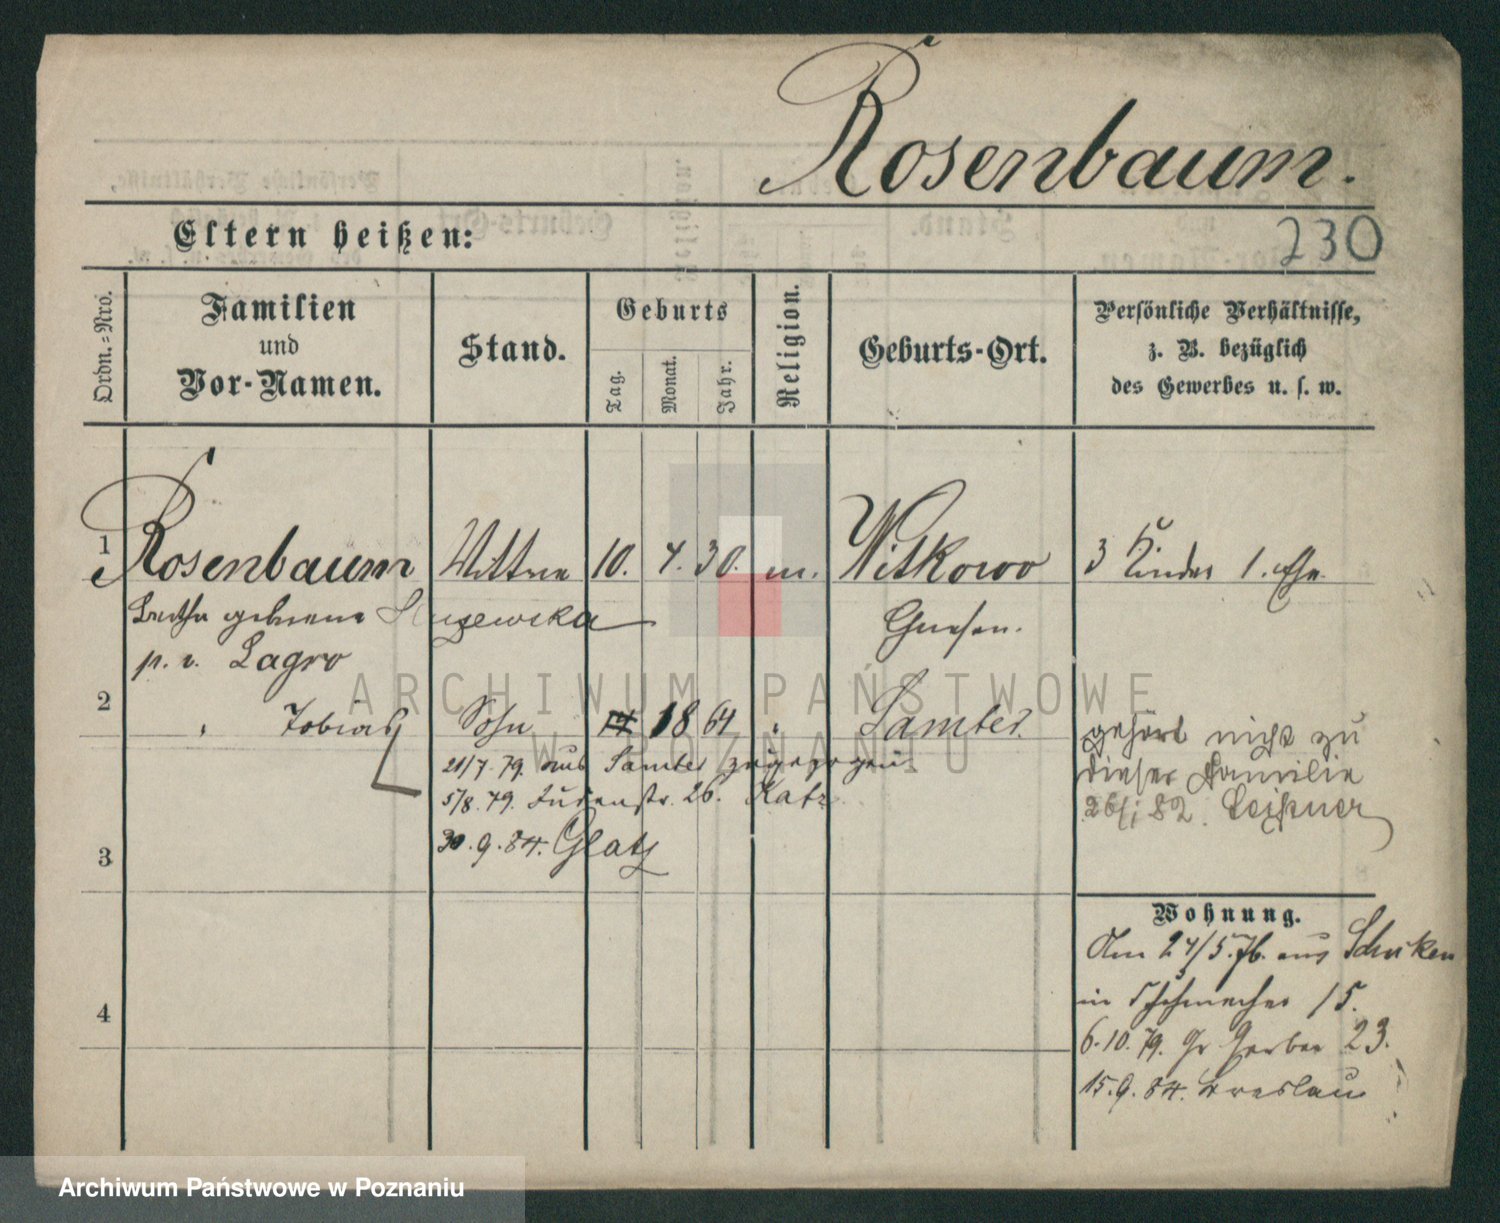 Rosenbaum.
230
Eltern heißen:
Ordn.-Nro.
Familien
und
Vor-Namen.
Stand.
Geburts
Tag.
Monat.
Jahr.
Religion.
Geburts-Ort.
Persönliche Verhältnisse,
z. B. bezüglich
des Gewerbes u. s. w.
1 Rosenbaum Wittwe 10. 4. 30. m. Witkowo 3 Kinder 1. Ehe
geborene Gnesen.
p. v. Lagro
2 " Tobias Sohn 18 64 " Samter
21/7. 79. aus Samter zugezogen
5/8. 79. Judenstr. 26. Katz
30. 9. 84. Glatz
gehört nicht zu
dieser Familie
26/i 82.
3
4
Wohnung.
Am 24/5. 76. aus Schocken
in Schuhmacher 15.
6. 10. 79. Gr Gerber 23.
15. 9. 84. Breslau
ARCHIWUM PAŃSTWOWE
W POZNANIU
Archiwum Państwowe w Poznaniu